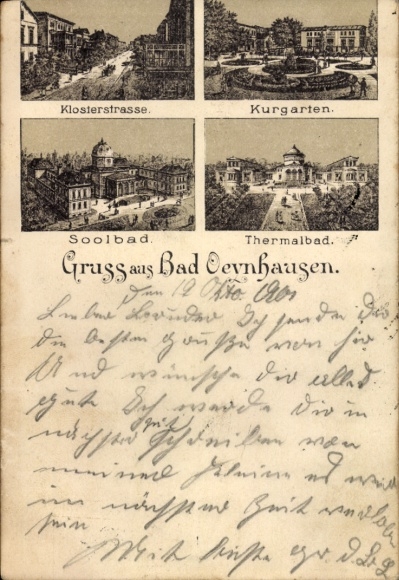 Klosterstrasse.
Kurgarten.
Soolbad.
Thermalbad.
Gruss aus Bad Oeynhausen.
Den 19 Okto.
Lieber Bruder Ich sende Dir
die besten Grüße von hir
Und wünsche dir alles
gute Ich werde dir in
nächster Zeit schreiben von
meiner es wird
in nächster Zeit
sein
Mit beste gr. d.